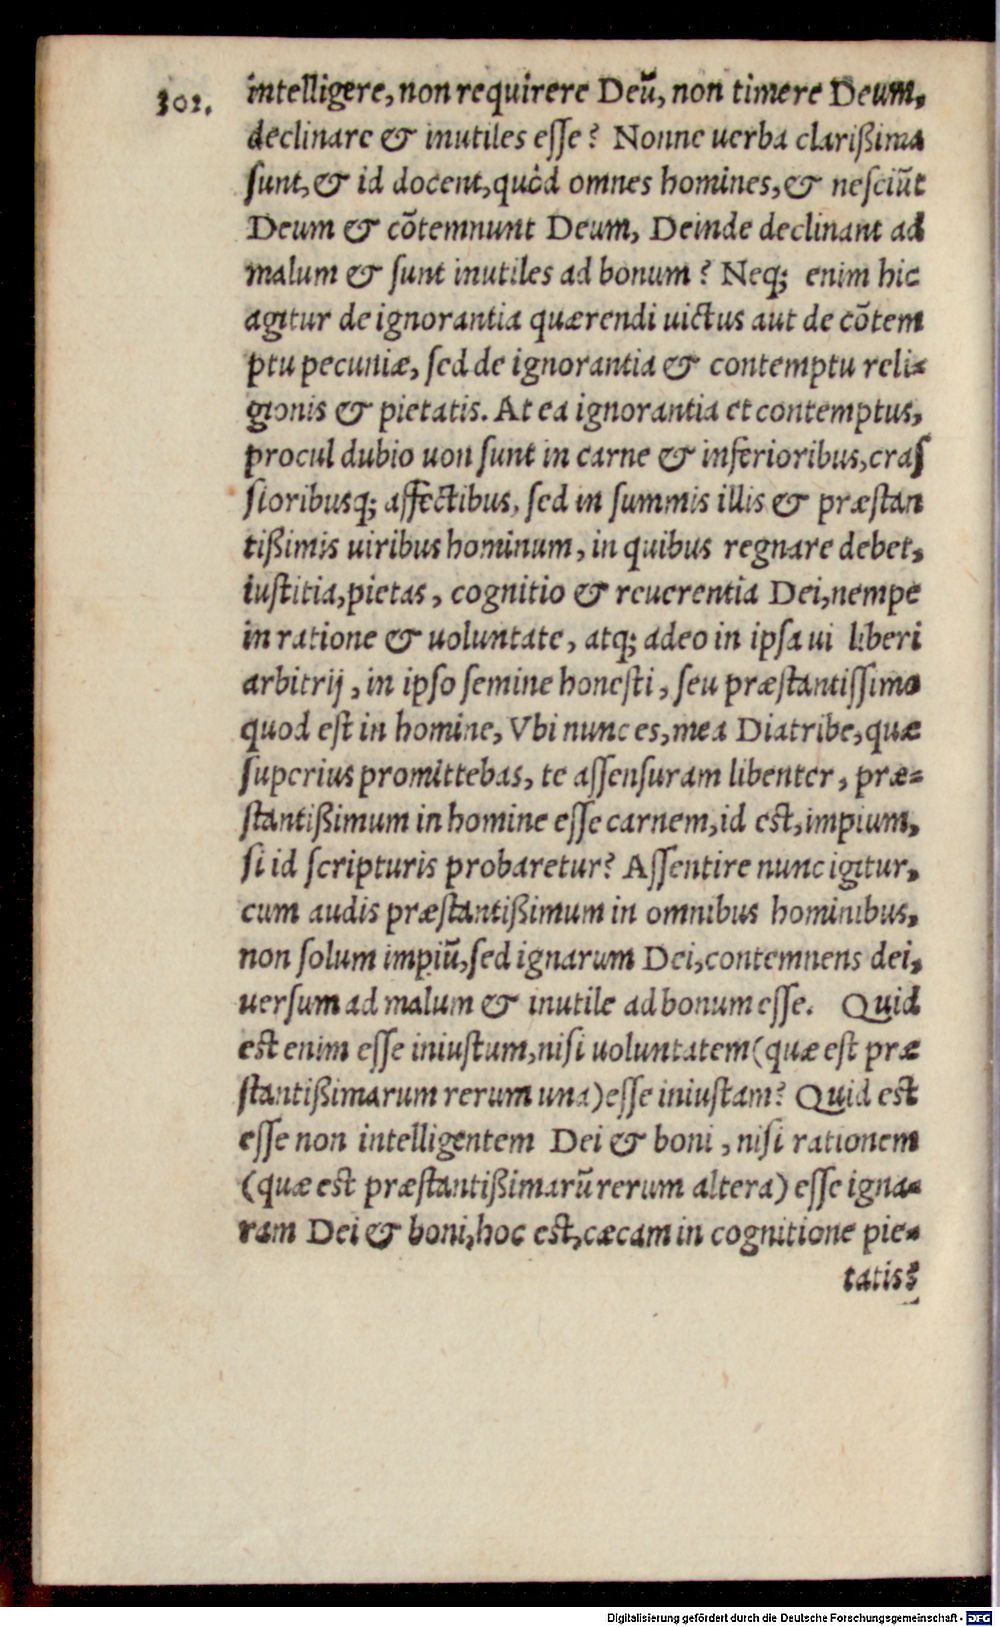 301.
intelligere, non requirere Deū, non timere Deum,
declinare & inutiles eſſe? Nonne uerba clariſſima
ſunt, & id docent, quòd omnes homines, & neſciūt
Deum & cōtemnunt Deum, Deinde declinant ad
malum & ſunt inutiles ad bonum? Neq; enim hic
agitur de ignorantia quærendi uictus aut de cōtem
ptu pecuniæ, ſed de ignorantia & contemptu reli-
gionis & pietatis. At ea ignorantia et contemptus,
procul dubio uon ſunt in carne & inferioribus, craſ
ſioribusq; affectibus, ſed in ſummis illis & præſtan
tißimis uiribus hominum, in quibus regnare debet,
iuſtitia, pietas, cognitio & reuerentia Dei, nempe
in ratione & uoluntate, atq; adeo in ipſa ui liberi
arbitrij, in ipſo ſemine honeſti, ſeu præſtantiſſimo
quod eſt in homine, Vbi nunc es, mea Diatribe, quæ
ſuperius promittebas, te aſſenſuram libenter, præ-
ſtantißimum in homine eſſe carnem, id eſt, impium,
ſi id ſcripturis probaretur? Aſſentire nunc igitur,
cum audis præſtantißimum in omnibus hominibus,
non ſolum impiū, ſed ignarum Dei, contemnens dei,
uerſum ad malum & inutile ad bonum eſſe. Quid
eſt enim eſſe iniuſtum, niſi uoluntatem (quæ eſt præ
ſtantißimarum rerum una) eſſe iniuſtam? Quid eſt
eſſe non intelligentem Dei & boni, niſi rationem
(quæ eſt præſtantißimarū rerum altera) eſſe igna-
ram Dei & boni, hoc eſt, cæcam in cognitione pie-
tatis?
Digitalisierung gefördert durch die Deutsche Forschungsgemeinschaft - DFG